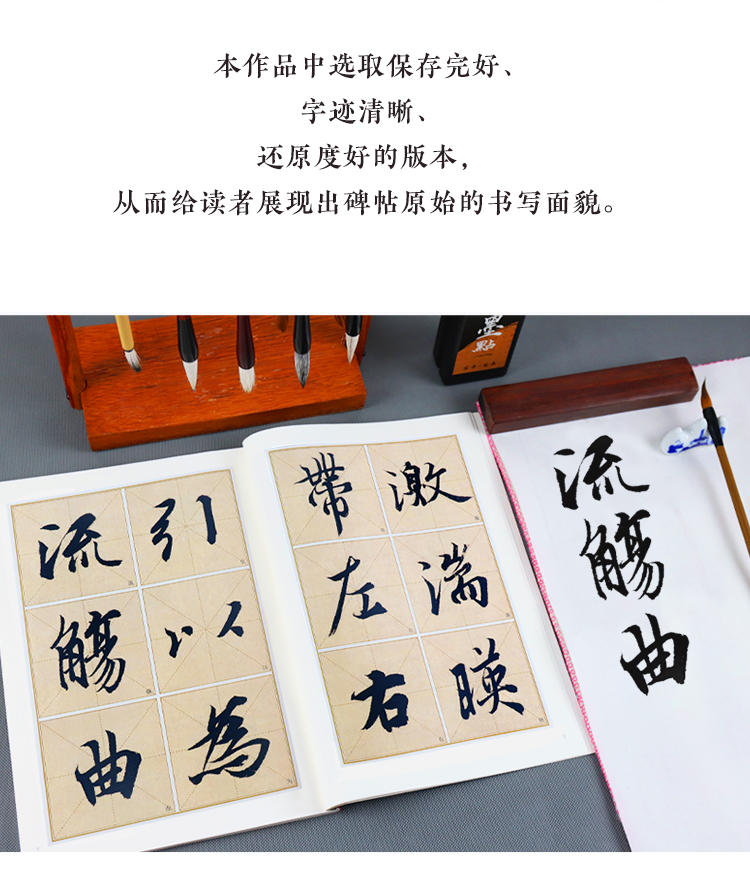 本作品中选取保存完好、
字迹清晰、
还原度好的版本，
从而给读者展现出碑帖原始的书写面貌。
墨點
激湍暎
帶左右
引以為
流觴曲
流觴曲